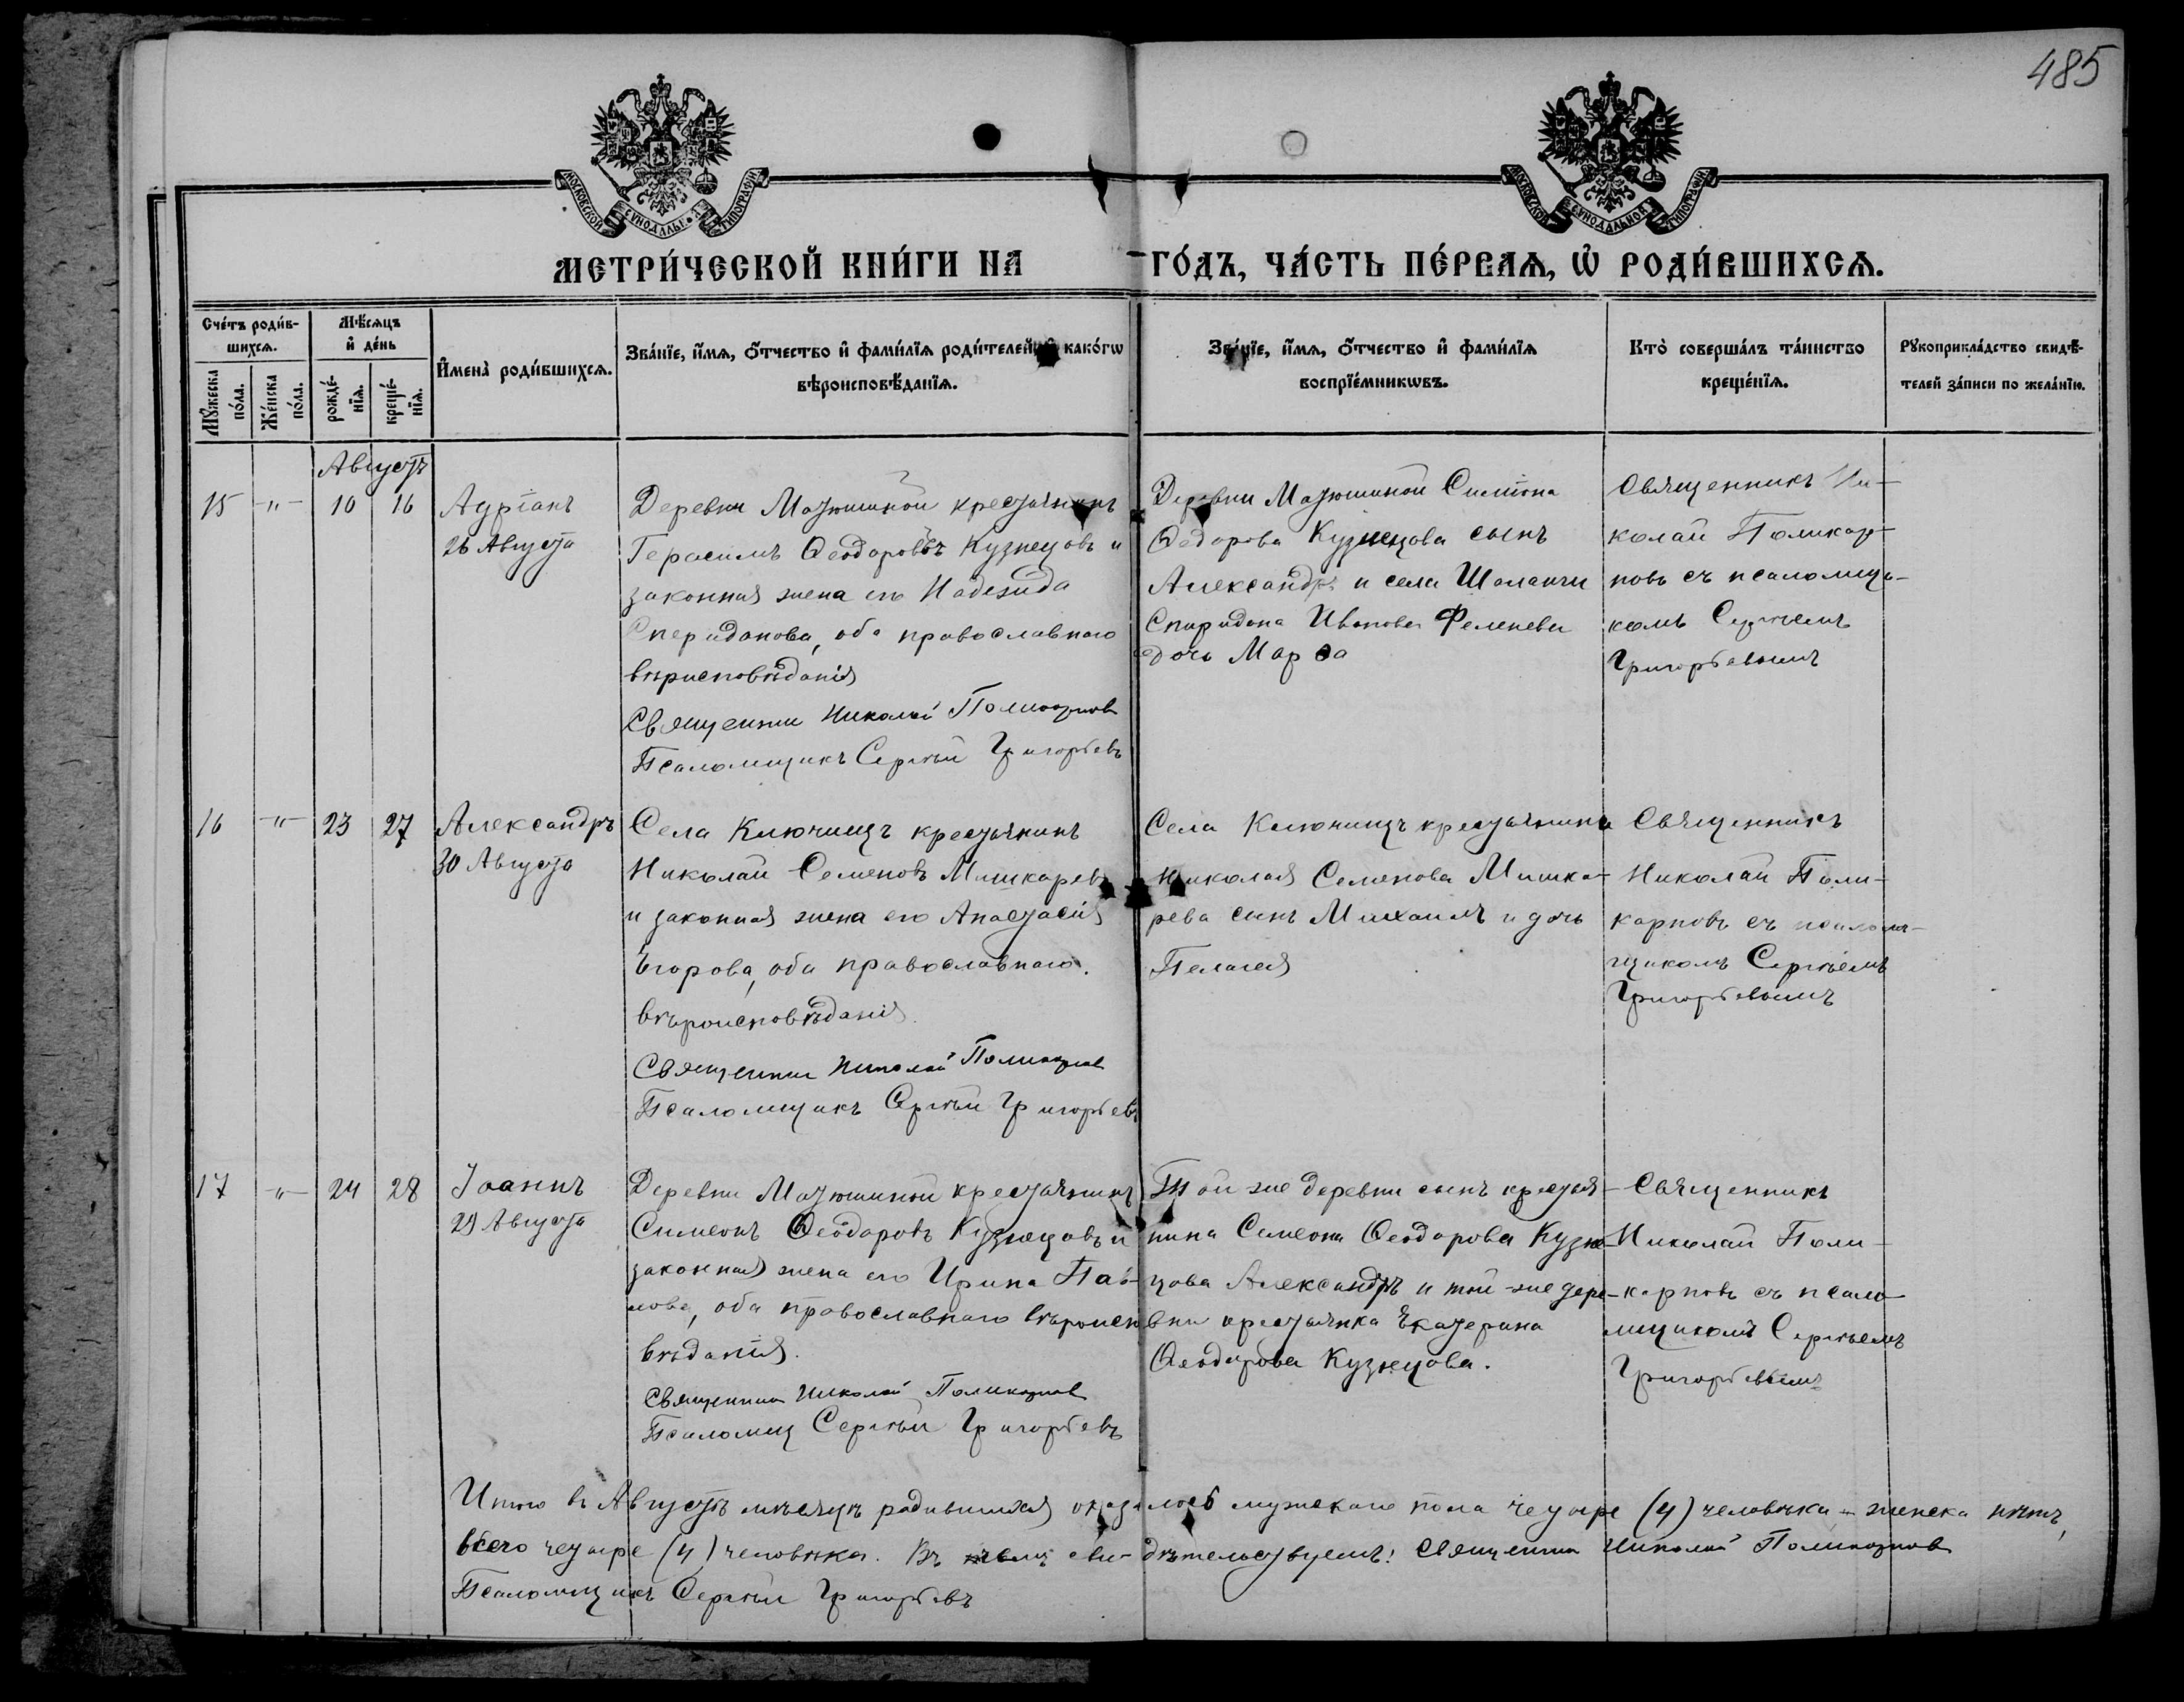 485
МОСКОВСКОЙ СѴНОДАЛЬНОЙ ТИПОГРАФІИ
МОСКОВСКОЙ СѴНОДАЛЬНОЙ ТИПОГРАФІИ
МЕТРИ́ЧЕСКОЙ КНИ́ГИ НА ГО́ДЪ, ЧА́СТЬ ПЕ́РВАѦ, Ѡ҆ РОДИ́ВШИХСѦ.
Сче́тъ роди́в-
шихсѧ.
Мꙋ́жеска по́ла.
Же́нска по́ла.
Мѣ́сѧцъ
и҆ де́нь
рожде́-
нїѧ.
креще́-
нїѧ.
И҆мена̀ роди́вшихсѧ.
Зва́нїе, и҆́мѧ, ѻ҆́тчество и҆ фами́лїѧ роди́телей, и҆ како́гѡ
вѣроисповѣ́данїѧ.
Зва́нїе, и҆́мѧ, ѻ҆́тчество и҆ фами́лїѧ
воспрїе́мникѡвъ.
Кто̀ соверша́лъ та́инство
креще́нїѧ.
Рꙋкоприкла́дство свидѣ́-
телей за́писи по жела́нїю.
Августъ
15 -"- 10 16
Адріанъ
26 Августа
Деревни Матюшиной крестьянинъ
Герасимъ Ѳеодоровъ Кузнецовъ и
законная жена его Надежда
Спиридонова, оба православнаго
вѣрисповѣданія
Священник Николай Поликарпов
Псаломщикъ Сергѣй Григорьевъ
Деревни Матюшиной Симіона
Ѳедорова Кузнецова сынъ
Александръ и села Шаланги
Спиридона Иванова Фелеnева
дочь Марѳа
Священникъ Ни-
колай Поликар-
повъ съ псаломщи-
комъ Сергѣемъ
Григорьевымъ
16 -"- 23 27
Александръ
30 Августа
Села Ключищъ крестьянинъ
Николай Семеновъ Мишкаревъ
и законная жена его Анастасія
Егорова, оба православнаго
вѣроисповѣданія.
Священник Николай Поликарпов
Псаломщикъ Сергѣй Григорьевъ
Села Ключищъ крестьянина
Николая Семенова Мишка-
рева сынъ Михаилъ и дочь
Пелагея
Священникъ
Николай Поли-
карповъ съ псалом-
щикомъ Сергѣемъ
Григорьевымъ
17 -"- 24 28
Іоаннъ
29 Августа
Деревни Матюшиной крестьянинъ
Симеонъ Ѳеодоровъ Кузнецовъ и
законная жена его Ирина Пав-
лова, оба православнаго вѣроиспо
вѣданія.
Священник Николай Поликарпов
Псаломщ Сергѣй Григорьевъ
Той же деревни сынъ крестья-
нина Симеона Ѳеодорова Кузне-
цова Александръ и той-же дере-
вни крестьянка Екатерина
Ѳеодорова Кузнецова.
Священникъ
Николай Поли-
карповъ съ псало-
мщикомъ Сергѣемъ
Григорьевымъ
Итого въ Августѣ мѣсяцѣ родившихся оказалось мужскаго пола четыре (4) человѣка - женска нѣтъ,
всего четыре (4) человѣка. Въ чемъ сви-дѣтельствуемъ: Священник Николай Поликарпов
Псаломщикъ Сергѣй Григорьевъ